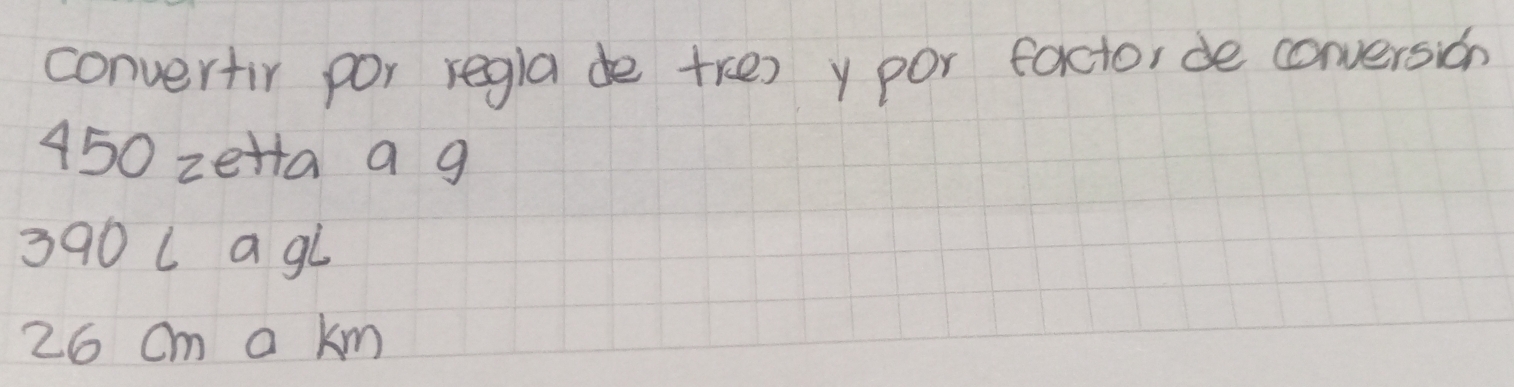 convertir por regla de tres y por factor de conversión
450 zetta a g
390 L a gL
26 cm a km